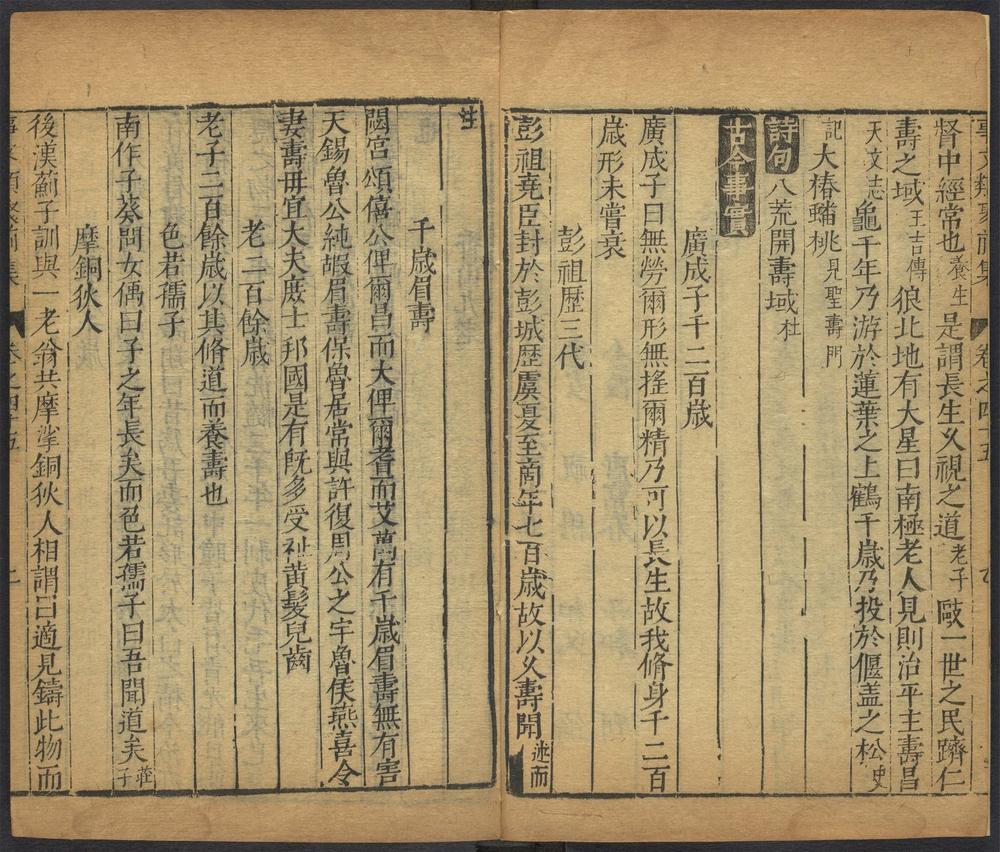 事文類聚前集　卷之四十五
督中經常也養生是謂長生久視之道老子歐一世之民躋仁
壽之域王吉傳狼北地有大星曰南極老人見則治平主壽昌
天文志龜千年乃游於蓮葉之上鶴千歲乃投於偃盖之松史
記大椿蟠桃見聖壽門
詩句八荒開壽域杜
古今事實
廣成子千二百歲
廣成子曰無勞爾形無搖爾精乃可以長生故我脩身千二百
歲形未嘗衰
彭祖歷三代
彭祖堯臣封於彭城歷虞夏至商年七百歲故以久壽聞述而
注
千歲眉壽
閟宮頌僖公俾爾昌而大俾爾耆而艾萬有千歲眉壽無有害
天錫魯公純嘏眉壽保魯居常與許復周公之宇魯侯燕喜令
妻壽毋宜大夫庻士邦國是有旣多受祉黃髮兒齒
老二百餘歲
老子二百餘歲以其脩道而養壽也
色若孺子
南作子葵問女偊曰子之年長矣而色若孺子曰吾聞道矣莊子
摩銅狄人
後漢薊子訓與一老翁共摩挲銅狄人相謂曰適見鑄此物而
事文類聚前集　卷之四十五　二